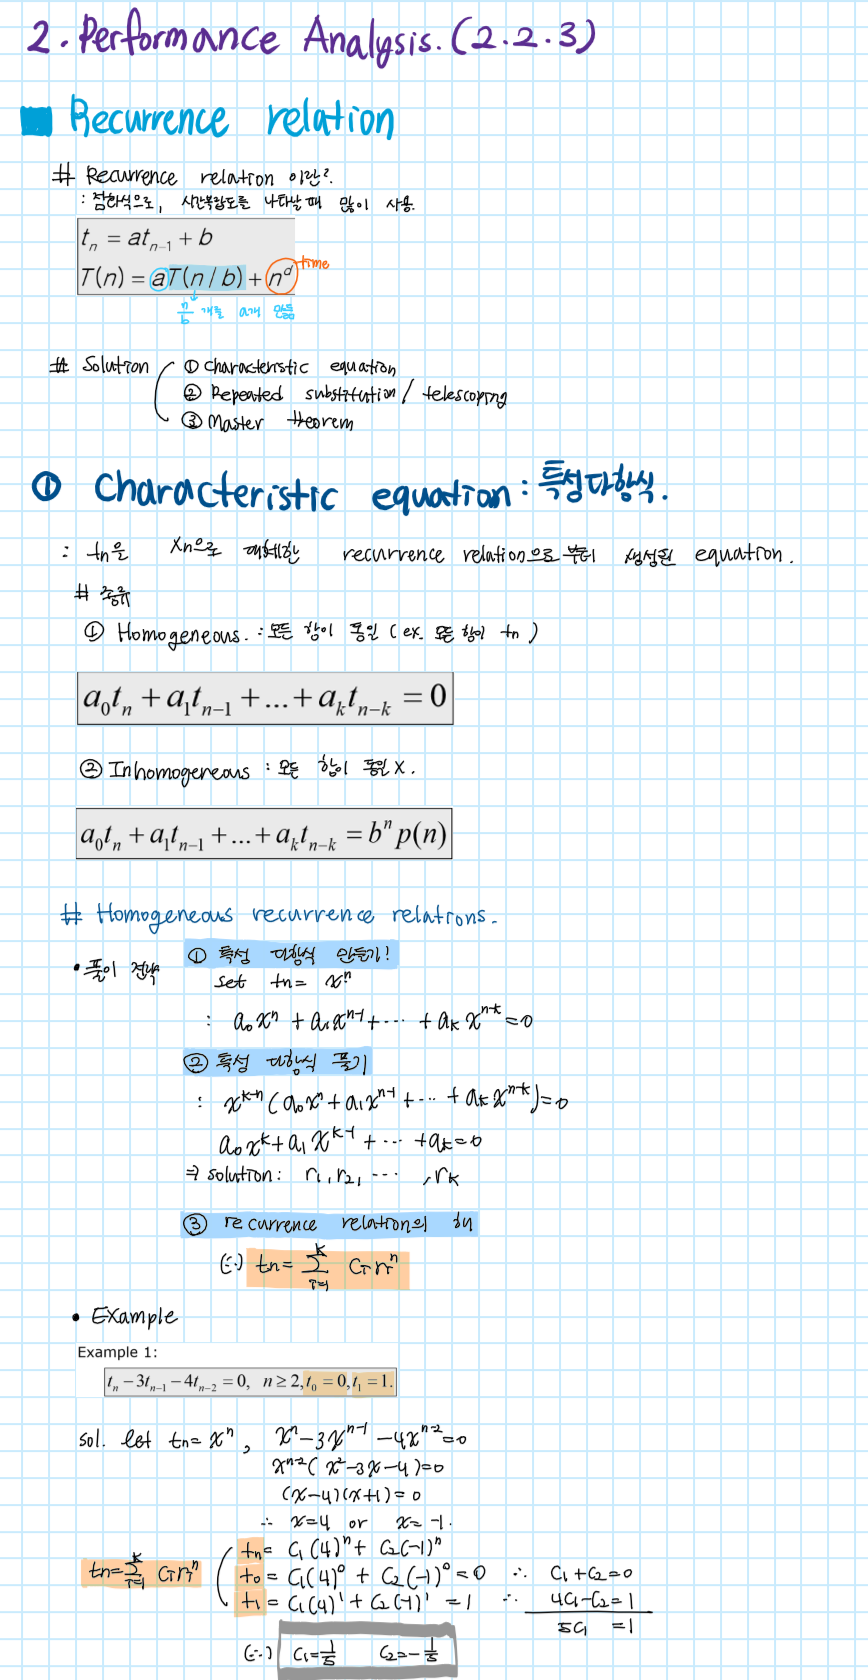 2. Performance Analysis. (2.2.3)
Recurrence relation
# Recurrence relation 이란?
: 점화식으로, 시간복잡도를 나타낼 때 많이 사용.
tₙ = atₙ₋₁ + b
T(n) = aT(n / b) + nᵈ time
n/b 개를 a개 만듦
# Solution ① characteristic equation
② Repeated substitution / telescoping
③ Master theorem
① Characteristic equation : 특성다항식.
: tn을 xn으로 대체한 recurrence relation으로부터 생성된 equation.
# 종류
① Homogeneous. : 모든 항이 동일 (ex. 모든 항이 tn)
a₀tₙ + a₁tₙ₋₁ + ... + aₖtₙ₋ₖ = 0
② Inhomogeneous : 모든 항이 동일 X.
a₀tₙ + a₁tₙ₋₁ + ... + aₖtₙ₋ₖ = bⁿ p(n)
# Homogeneous recurrence relations.
• 풀이 전략 ① 특성 다항식 만들기!
set tn = xⁿ
: a₀xⁿ + a₁xⁿ⁻¹ + ··· + aₖxⁿ⁻ᵏ = 0
② 특성 다항식 풀기
: xᵏ⁻ⁿ(a₀xⁿ + a₁xⁿ⁻¹ + ··· + aₖxⁿ⁻ᵏ) = 0
a₀xᵏ + a₁xᵏ⁻¹ + ··· + aₖ = 0
⇒ solution: r₁, r₂, ··· , rₖ
③ recurrence relation의 해
(∴) tn = Σᵢ₌₁ᵏ Cᵢrᵢⁿ
• Example
Example 1:
tₙ − 3tₙ₋₁ − 4tₙ₋₂ = 0, n ≥ 2, t₀ = 0, t₁ = 1.
sol. let tn = xⁿ, xⁿ − 3xⁿ⁻¹ − 4xⁿ⁻² = 0
xⁿ⁻²(x² − 3x − 4) = 0
(x − 4)(x + 1) = 0
∴ x = 4 or x = −1.
tn = Σᵢ₌₁ᵏ Cᵢrᵢⁿ
tn = C₁(4)ⁿ + C₂(−1)ⁿ
t₀ = C₁(4)⁰ + C₂(−1)⁰ = 0 ∴ C₁ + C₂ = 0
t₁ = C₁(4)¹ + C₂(−1)¹ = 1 ∴ 4C₁ − C₂ = 1
5C₁ = 1
(∴) C₁ = 1/5 C₂ = −1/5